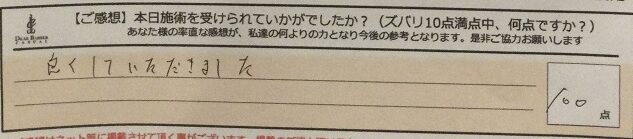 【ご感想】本日施術を受けられていかがでしたか？（ズバリ10点満点中、何点ですか？）
あなた様の率直な感想が、私達の何よりの力となり今後の参考となります。是非ご協力お願いします
良くしていただきました
100点